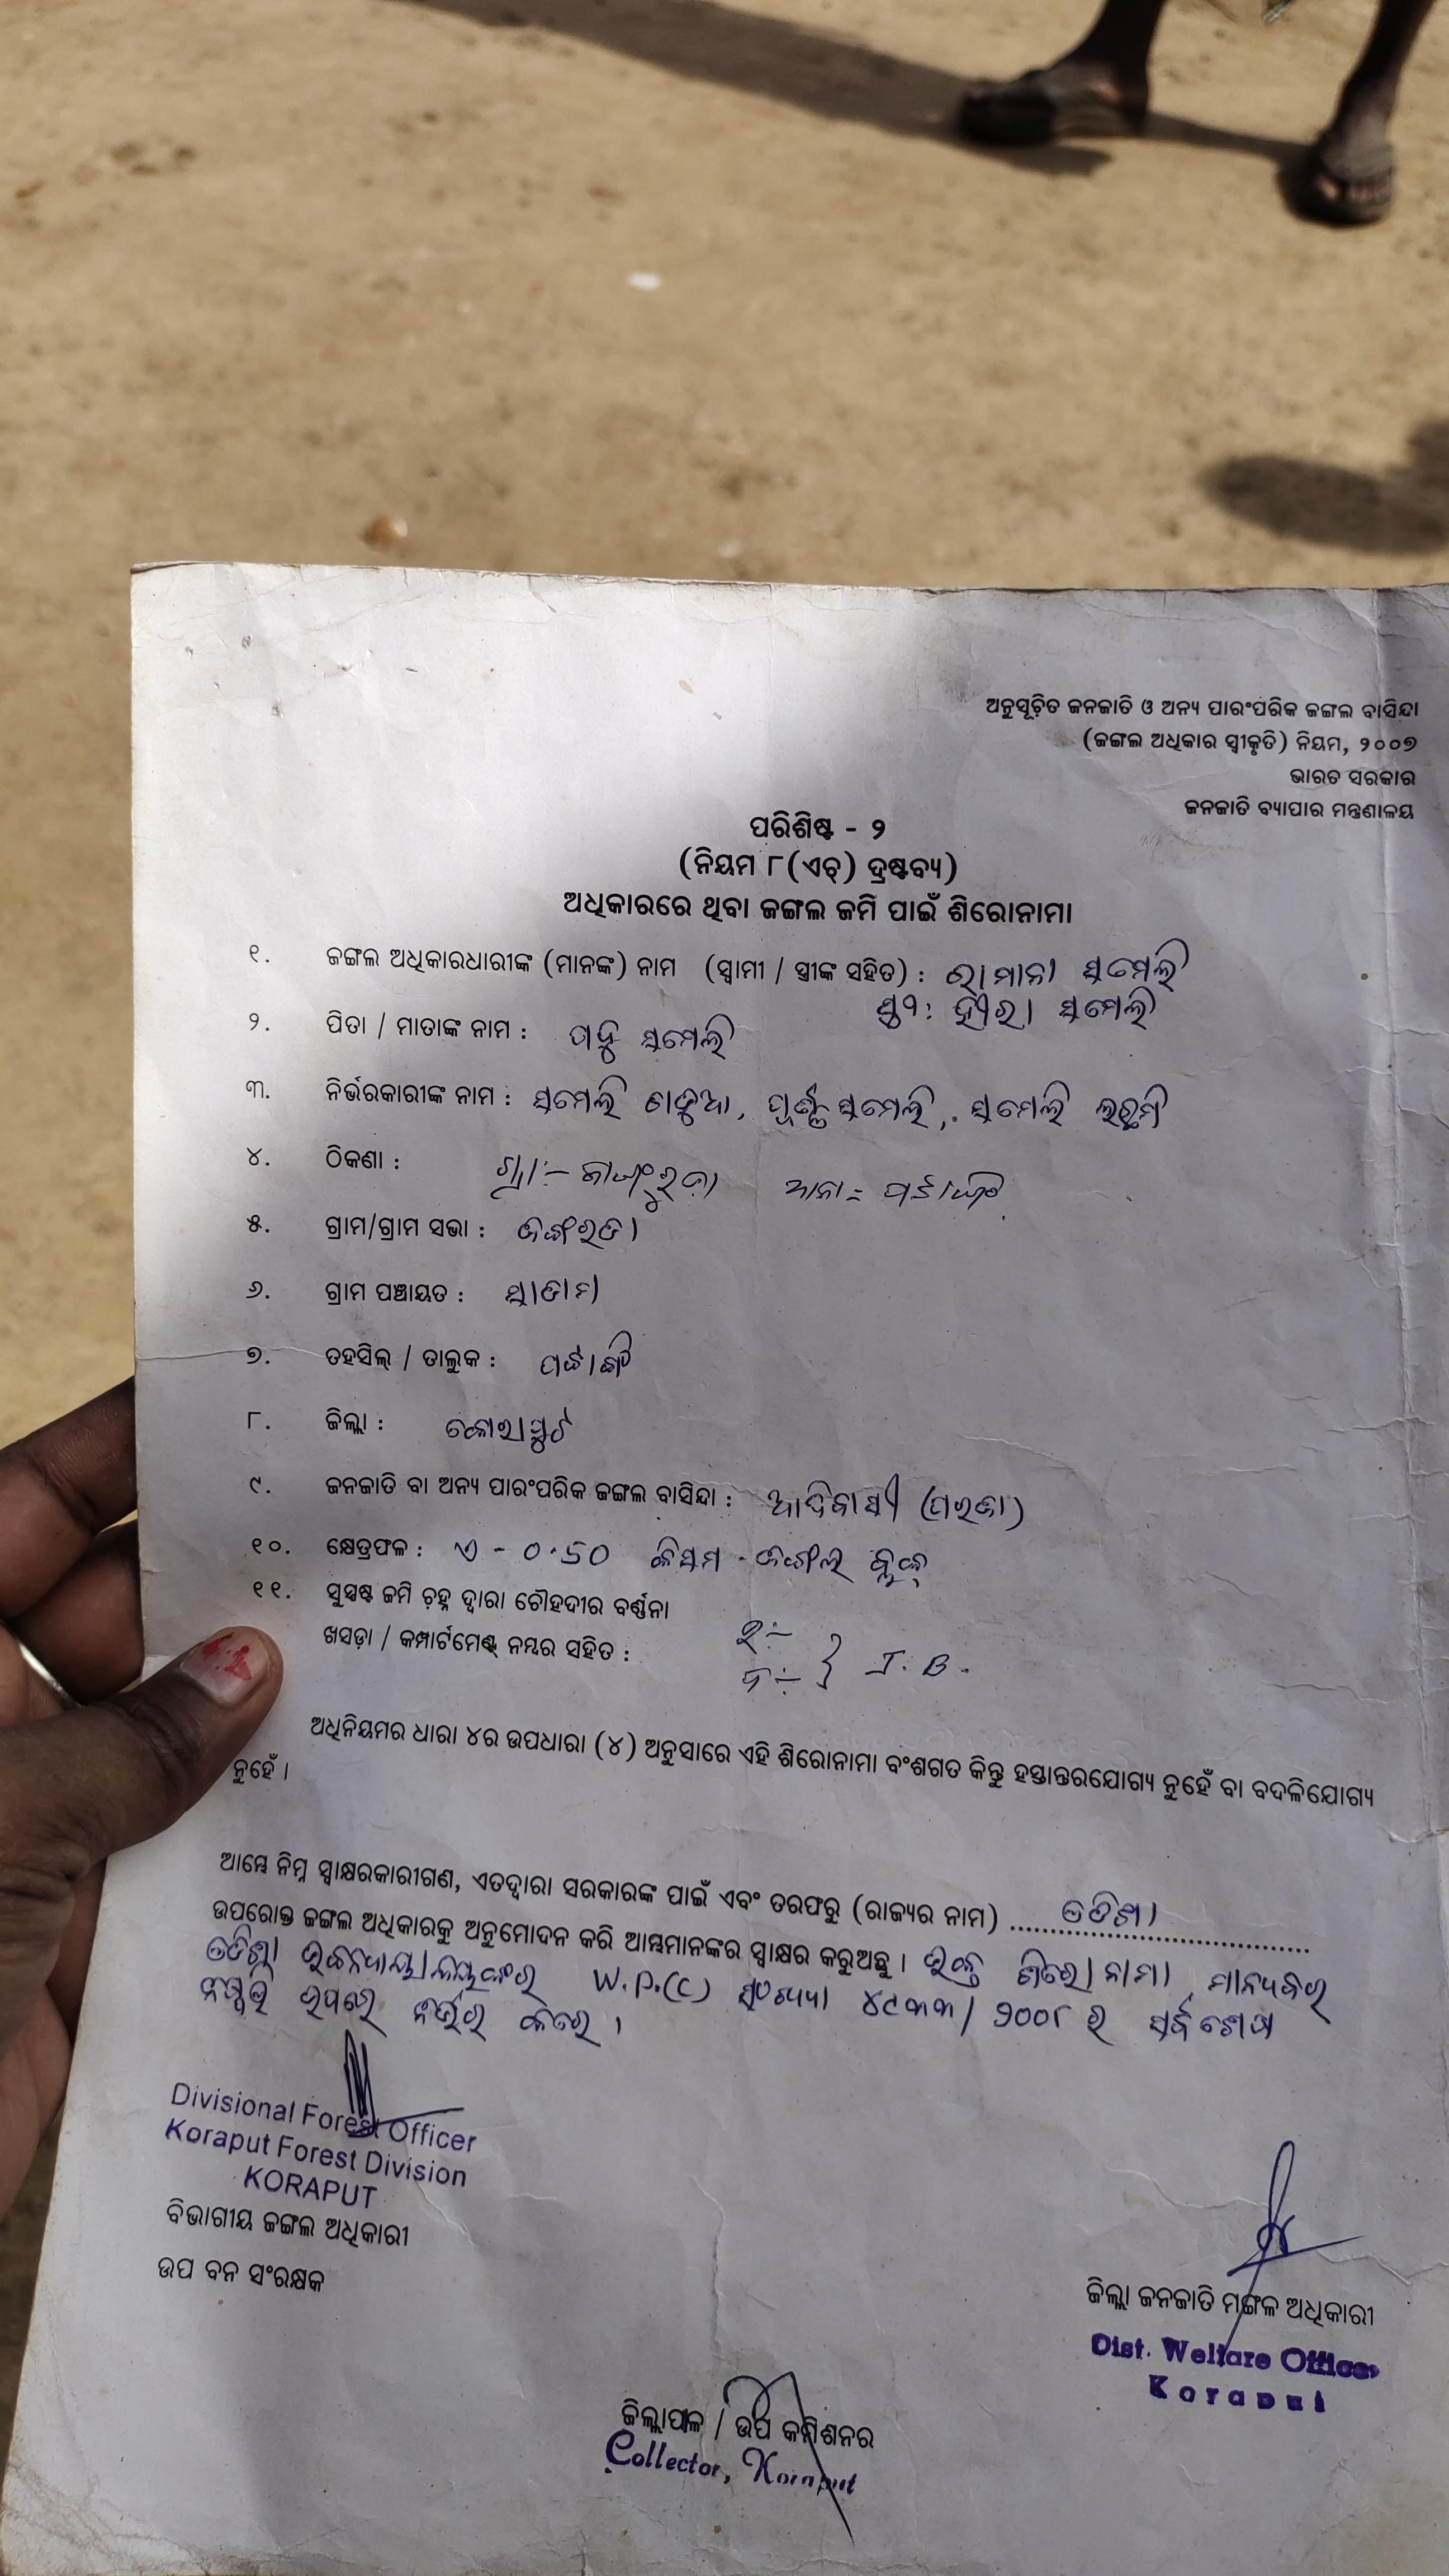 ଅନୁସୂଚିତ ଜନଜାତି ଓ ଅନ୍ୟ ପାରଂପରିକ ଜଙ୍ଗଲ ବାସିନ୍ଦା
(ଜଙ୍ଗଲ ଅଧିକାର ସ୍ୱୀକୃତି) ନିୟମ, ୨୦୦୭
ଭାରତ ସରକାର
ଜନଜାତି ବ୍ୟାପାର ମନ୍ତ୍ରଣାଳୟ
ପରିଶିଷ୍ଟ - ୨
(ନିୟମ ୮(ଏଚ୍) ଦ୍ରଷ୍ଟବ୍ୟ)
ଅଧିକାରରେ ଥିବା ଜଙ୍ଗଲ ଜମି ପାଇଁ ଶିରୋନାମା
୧. ଜଙ୍ଗଲ ଅଧିକାରଧାରୀଙ୍କ (ମାନଙ୍କ) ନାମ (ସ୍ୱାମୀ / ସ୍ତ୍ରୀଙ୍କ ସହିତ) : ରାମାନା ସମେଲି
ସ୍ତ୍ରୀ: ହୀରା ସମେଲି
୨. ପିତା / ମାତାଙ୍କ ନାମ : ସମେଲି
୩. ନିର୍ଭରକାରୀଙ୍କ ନାମ : ସମେଲି ସମେଲି, ସମେଲି
୪. ଠିକଣା : ଗ୍ରା:-
୫. ଗ୍ରାମ/ଗ୍ରାମ ସଭା :
୬. ଗ୍ରାମ ପଞ୍ଚାୟତ :
୭. ତହସିଲ୍ / ତାଲୁକ : ପଟ୍ଟାଙ୍ଗି
୮. ଜିଲ୍ଲା : କୋରାପୁଟ
୯. ଜନଜାତି ବା ଅନ୍ୟ ପାରଂପରିକ ଜଙ୍ଗଲ ବାସିନ୍ଦା : ଆଦିବାସୀ (ପରଜା)
୧୦. କ୍ଷେତ୍ରଫଳ : ଏ - ୦.୫୦ କିସମ - ଜଙ୍ଗଲ ବ୍ଲକ୍
୧୧. ସୁସ୍ପଷ୍ଟ ଜମି ଚ଼ହ୍ନ ଦ୍ୱାରା ଚୌହଦୀର ବର୍ଣ୍ଣନା
ଖସଡ଼ା / କମ୍ପାର୍ଟମେଣ୍ଟ୍ ନମ୍ବର ସହିତ : J. B.
ଅଧିନିୟମର ଧାରା ୪ର ଉପଧାରା (୪) ଅନୁସାରେ ଏହି ଶିରୋନାମା ବଂଶଗତ କିନ୍ତୁ ହସ୍ତାନ୍ତରଯୋଗ୍ୟ ନୁହେଁ ବା ବଦଳିଯୋଗ୍ୟ
ନୁହେଁ ।
ଆମ୍ଭେ ନିମ୍ନ ସ୍ୱାକ୍ଷରକାରୀଗଣ, ଏତଦ୍ୱାରା ସରକାରଙ୍କ ପାଇଁ ଏବଂ ତରଫରୁ (ରାଜ୍ୟର ନାମ) ଓଡିଶା
ଉପରୋକ୍ତ ଜଙ୍ଗଲ ଅଧିକାରକୁ ଅନୁମୋଦନ କରି ଆମ୍ଭମାନଙ୍କର ସ୍ୱାକ୍ଷର କରୁଅଛୁ । ଉକ୍ତ ଶିରୋନାମା ମାନ୍ୟବର
ଓଡିଶା W.P.(C) ସଂଖ୍ୟା ୪୯୩୩/୨୦୦୮ ର ସର୍ବଶେଷ
ଉପରେ ନିର୍ଭର କରେ ।
Divisional Forest Officer
Koraput Forest Division
KORAPUT
ବିଭାଗୀୟ ଜଙ୍ଗଲ ଅଧିକାରୀ
ଉପ ବନ ସଂରକ୍ଷକ
ଜିଲ୍ଲା ଜନଜାତି ମଙ୍ଗଳ ଅଧିକାରୀ
Dist. Welfare Officer
Koraput
ଜିଲ୍ଲାପାଳ / ଉପ କମିଶନର
Collector, Koraput